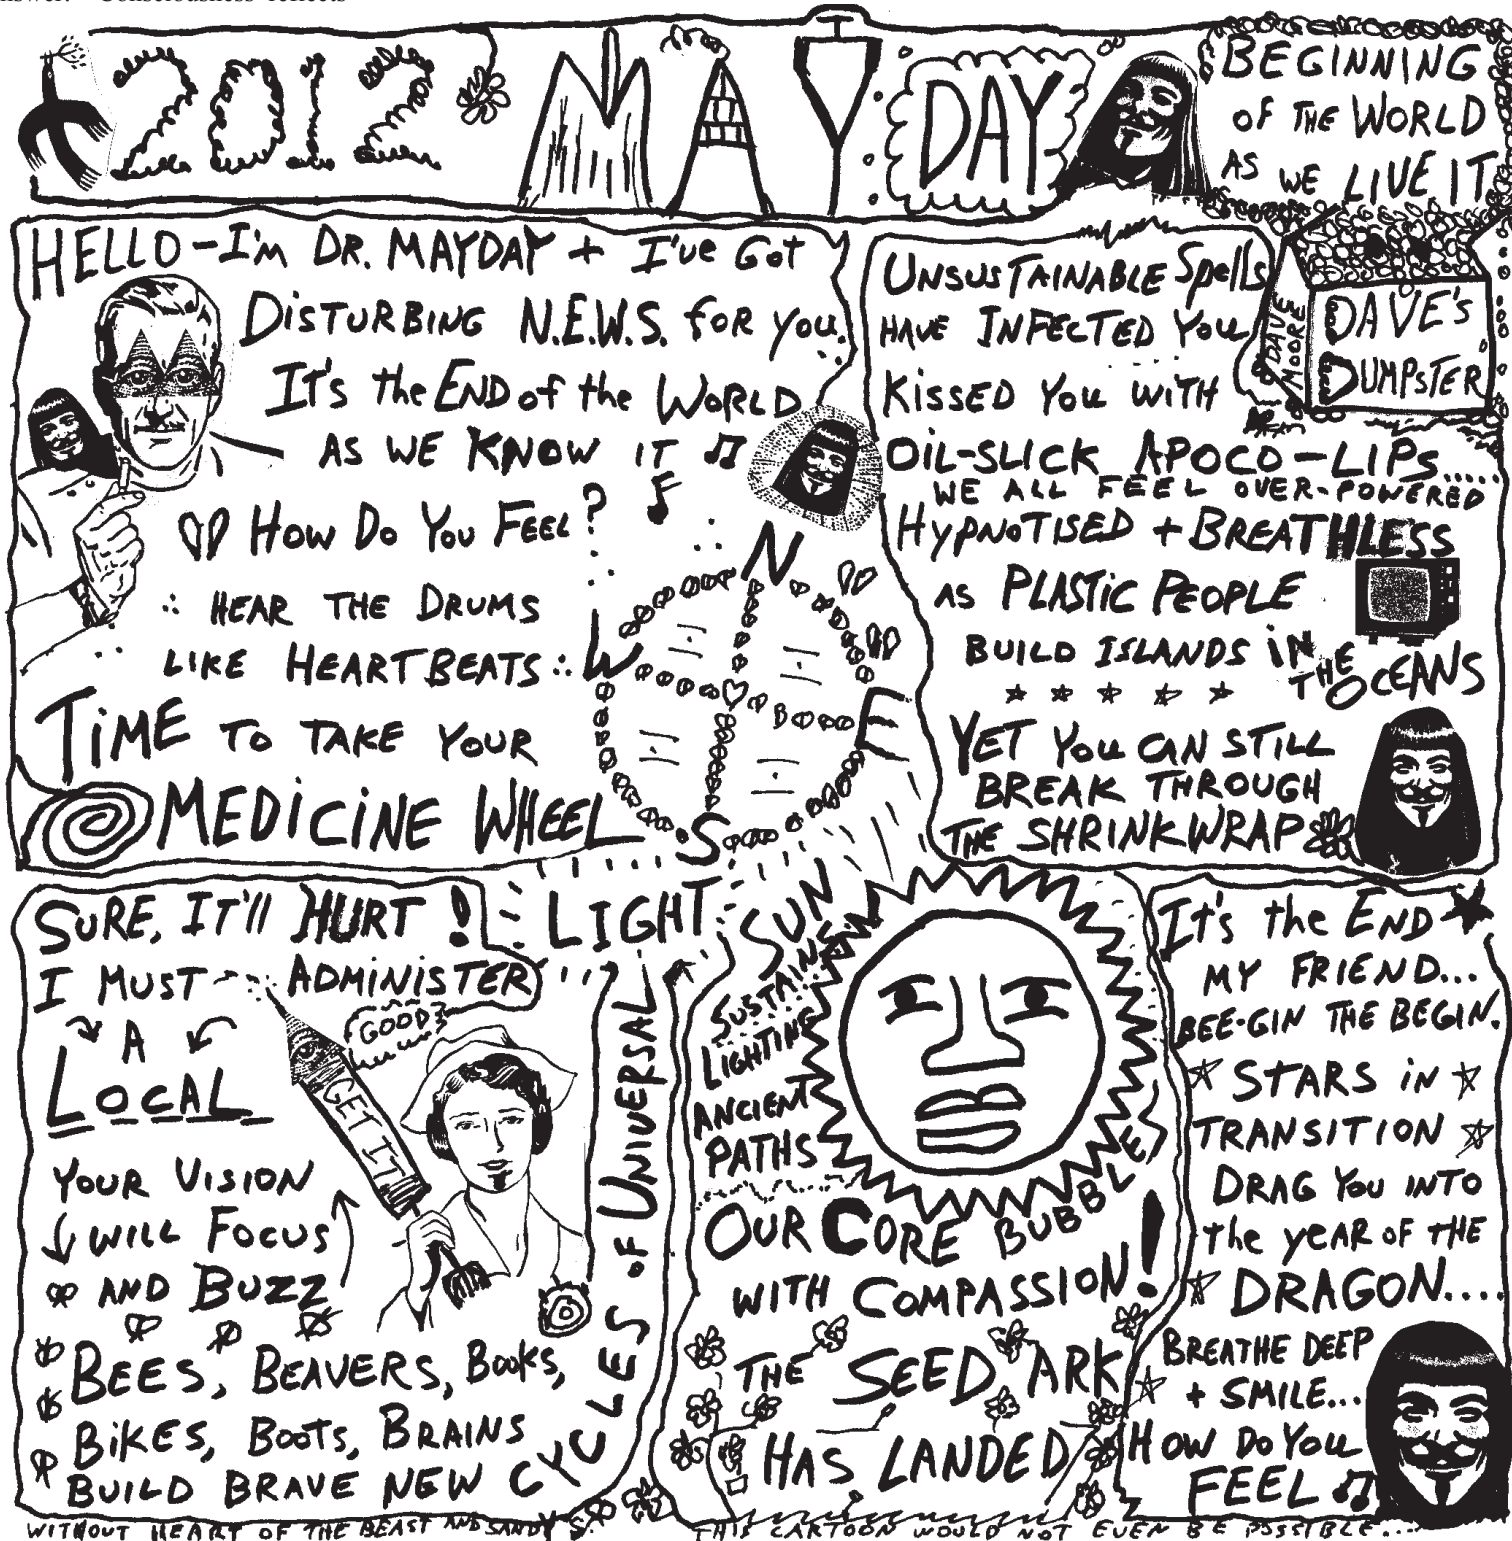 2012 MAY DAY
BEGINNING
OF THE WORLD
AS WE LIVE IT
HELLO-I'm DR. MAYDAY + I've Got
DISTURBING N.E.W.S. for you.
It's the END of the WORLD
AS WE KNOW IT
How Do You FEEL?
HEAR THE DRUMS
LIKE HEARTBEATS
TiME TO TAKE YOUR
MEDiCiNE WHEEL
N
W
E
S
UNSUSTAINABLE Spells
HAVE INFECTED You
KissED You WiTH
OiL-SLiCK APOCO-LiPs.....
WE ALL FEEL OVER-POWERED
HypNOTISED + BREATHLESS
AS PLASTiC PEOPLE
BUILD ISLANDS iN
THE OCEANS
YET You CAN STiLL
BREAK THROUGH
THE SHRINKWRAP
DAVE MOORE
DAVE'S
DUMPSTER
SURE, IT'll HURT!
I MUST ADMINISTER
A
LOCAL
GOOD
GET IT!
YOUR VISION
WILL FOCUS
AND BUZZ
BEES, BEAVERS, Books,
BiKES, BooTs, BRAINS
BUILD BRAVE NEW CYCLES OF UNIVERSAL
LIGHT
SUN
SUSTAINS
LIGHTING
ANCIENT
PATHS
OUR CORE BUBBLES
WITH COMPASSION!
THE SEED ARK
HAS LANDED
It's the END
MY FRIEND...
BEE-GIN THE BEGIN.
STARS iN
TRANSITION
DRAG You INTO
the yEAR OF THE
DRAGON....
BREATHE DEEP
+ SMILE...
HOW Do You
FEEL
WITHOUT HEART OF THE BEAST AND SANDY S.
THIS CARTOON WOULD NOT EVEN BE POSSIBLE....